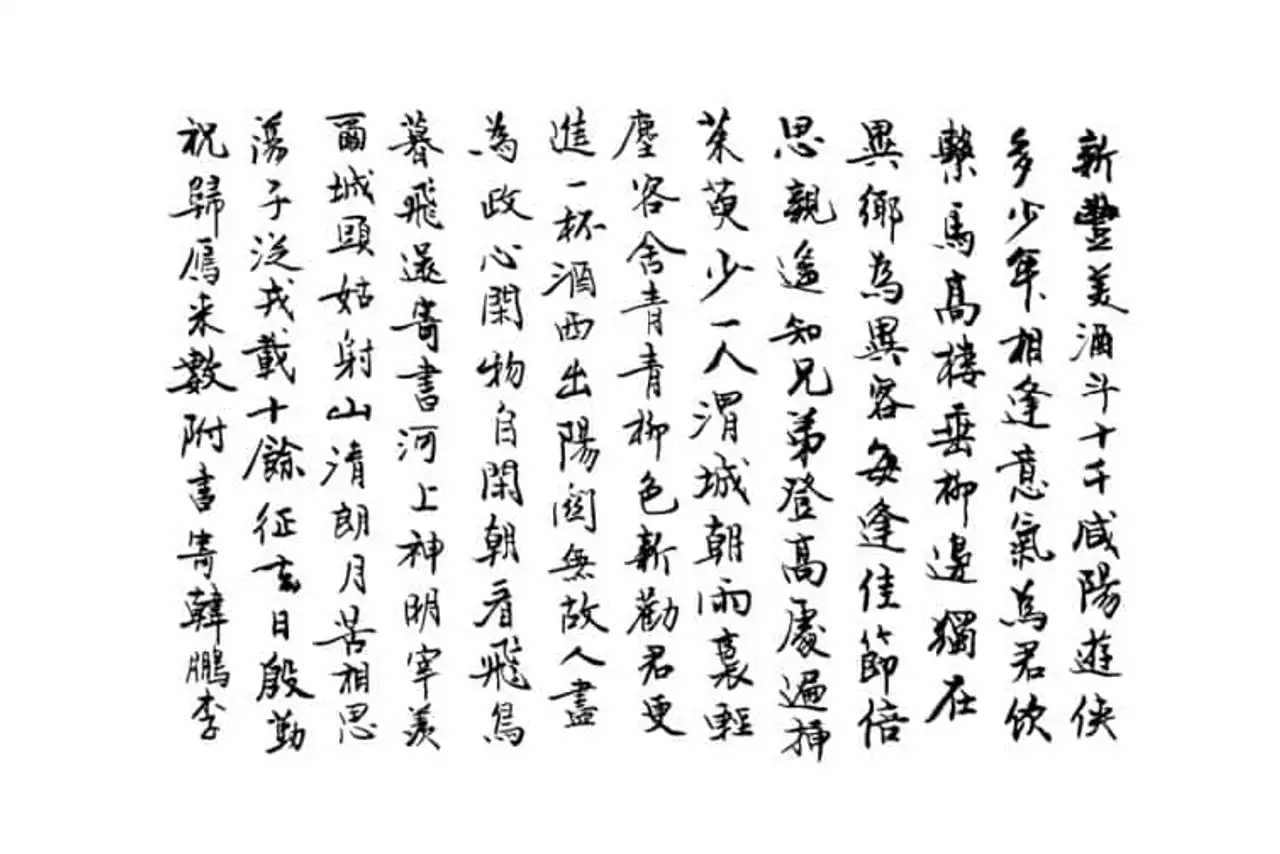 新豐美酒斗十千咸陽遊俠
多少年相逢意氣為君飲
繫馬高樓垂柳邊獨在
異鄉為異客每逢佳節倍
思親遙知兄弟登高處遍插
茱萸少一人渭城朝雨裛輕
塵客舍青青柳色新勸君更
進一杯酒西出陽關無故人盡
為政心閑物自閑朝看飛鳥
暮飛還寄書河上神明宰羨
爾城頭姑射山清朗月苦相思
蕩子從戎十載餘征人去日殷勤
祝歸雁來數附書寄韓鵬李